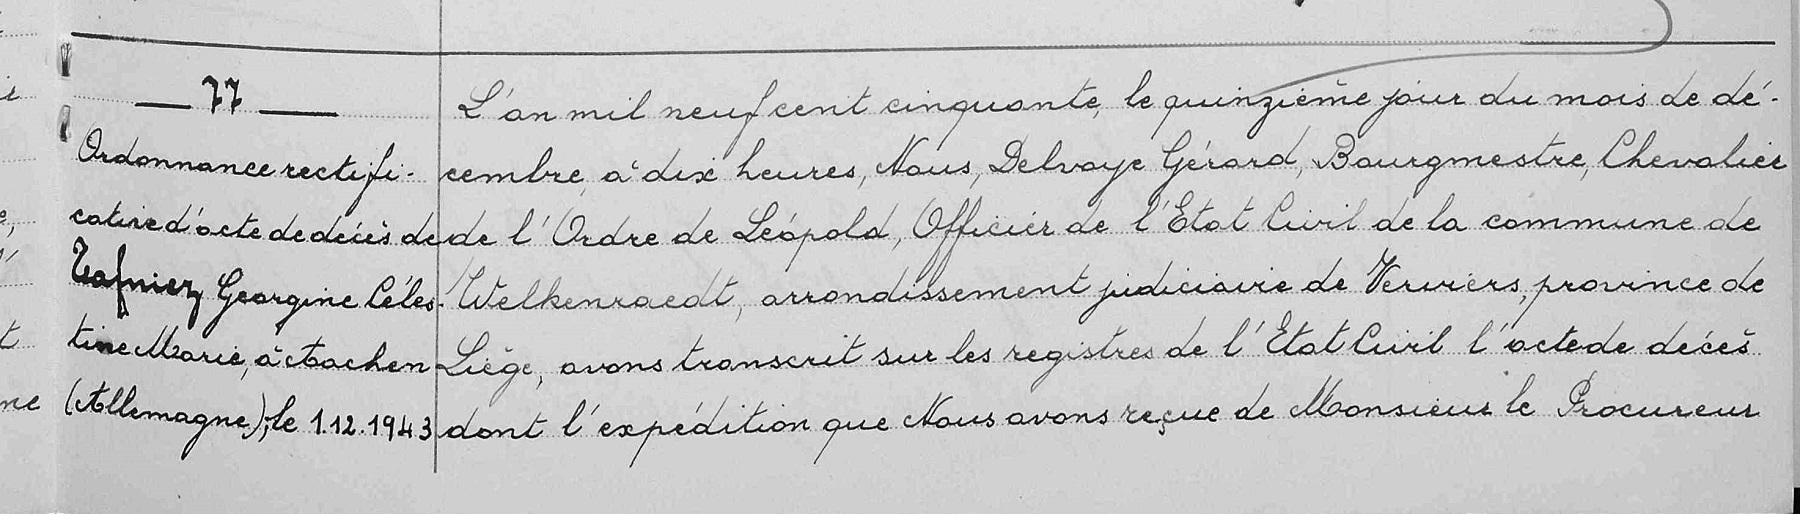 77
Ordonnance rectifi-
cative d'acte de décès de
Tafniez Georgine Céles-
tine Marie, à Aachen
(Allemagne), le 1.12.1943
L'an mil neuf cent cinquante, le quinzième jour du mois de dé-
cembre, à dix heures, Nous, Delvoye Gérard, Bourgmestre, Chevalier
de l'Ordre de Léopold, Officier de l'Etat Civil de la commune de
Welkenraedt, arrondissement judiciaire de Verviers, province de
Liège, avons transcrit sur les registres de l'Etat Civil l'acte de décès
dont l'expédition que Nous avons reçue de Monsieur le Procureur